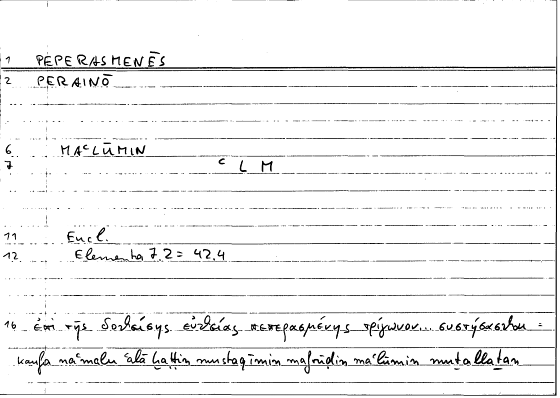 1 PEPERASMENĒS
2 PERAINŌ
6 MAʿLŪMIN
7 ʿ L M
11 Eucl.
12 Elementa 7.2 = 42.4
16 ἐπὶ τῆς δοθείσης εὐθείας πεπερασμένης τρίγωνον... συστήσασθαι =
kaifa naʿmalu ʿalā ḫaṭṭin mustaqīmin mafrūḍin maʿlūmin muṯallaṯan